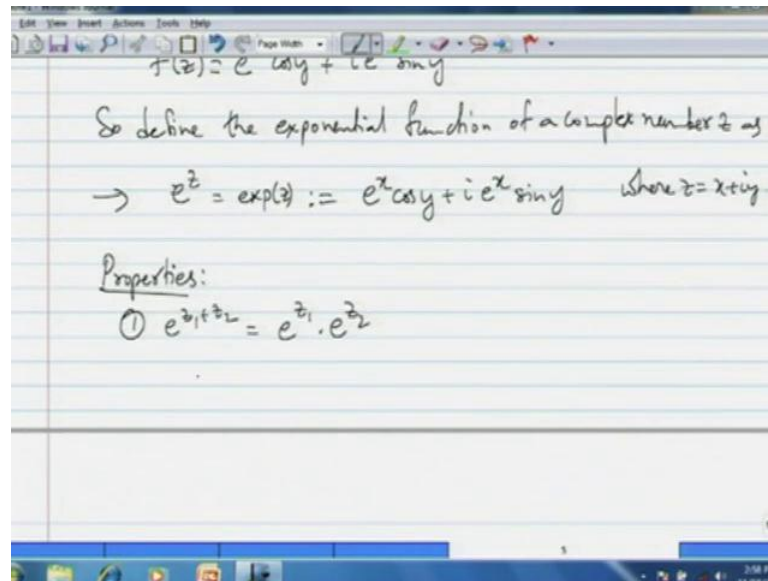 Edit View Insert Actions Tools Help
Page Width
f(z) = e cosy + ie siny
So define the exponential function of a complex number z as
→ e^z = exp(z) := e^x cosy + i e^x siny where z = x+iy
Properties:
① e^{z_1+z_2} = e^{z_1} . e^{z_2}
5
2:58 P